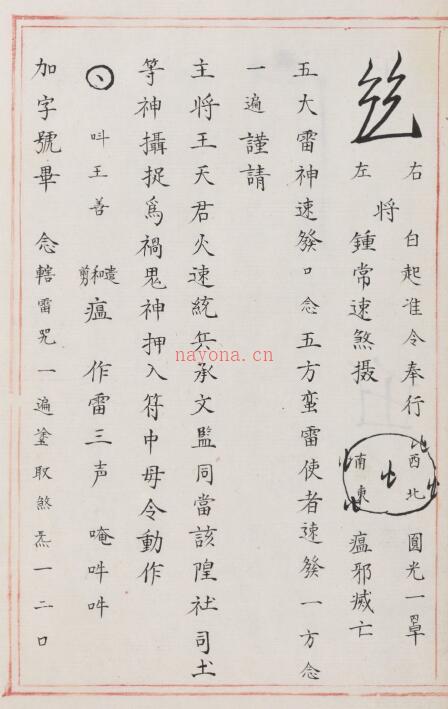 右 白起准令奉行 圓光一罩
將
左 鍾常速煞摄 西北南東 瘟邪滅亡
五大雷神速發口念五方蛮雷使者速發一方念
一遍謹請
主將王天君火速統兵承文監同當該隍社司土
等神攝捉為禍鬼神押入符中毋令動作
呌王善 遣和剪瘟 作雷三声 唵吽吽
加字號畢 念轄雷咒一遍塗取煞炁一二口
nayona.cn